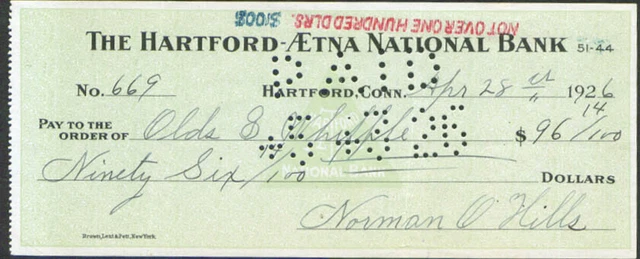 NOT OVER ONE HUNDRED DLRS. $100$
THE HARTFORD-ÆTNA NATIONAL BANK 51-44
PAID
No. 669 HARTFORD, CONN. Apr 28 1926
PAY TO THE ORDER OF Olds & Whipple $ 96 14/100
Ninety Six 14/100 DOLLARS
NATIONAL BANK
Norman O Hills
Brown, Lent & Pett, New York.